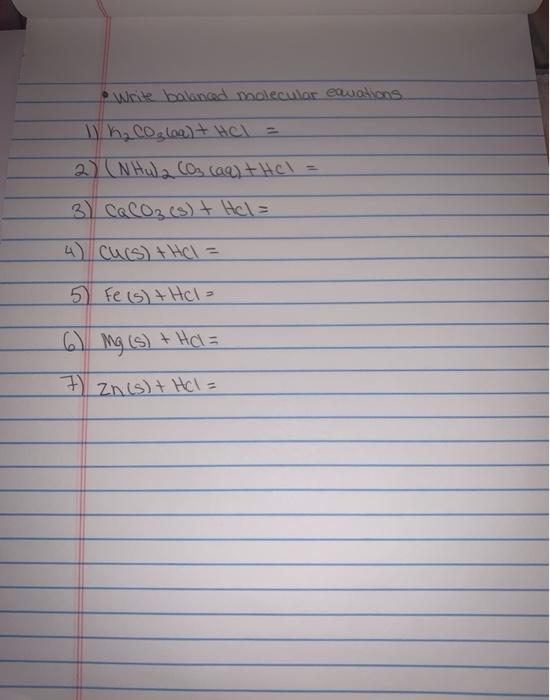 • Write balanced molecular equations
1) K₂CO₃(aq) + HCl =
2) (NH4)₂ CO₃ (aq) + HCl =
3) CaCO₃ (s) + HCl =
4) Cu(s) + HCl =
5) Fe (s) + HCl =
6) Mg (s) + HCl =
7) Zn (s) + HCl =